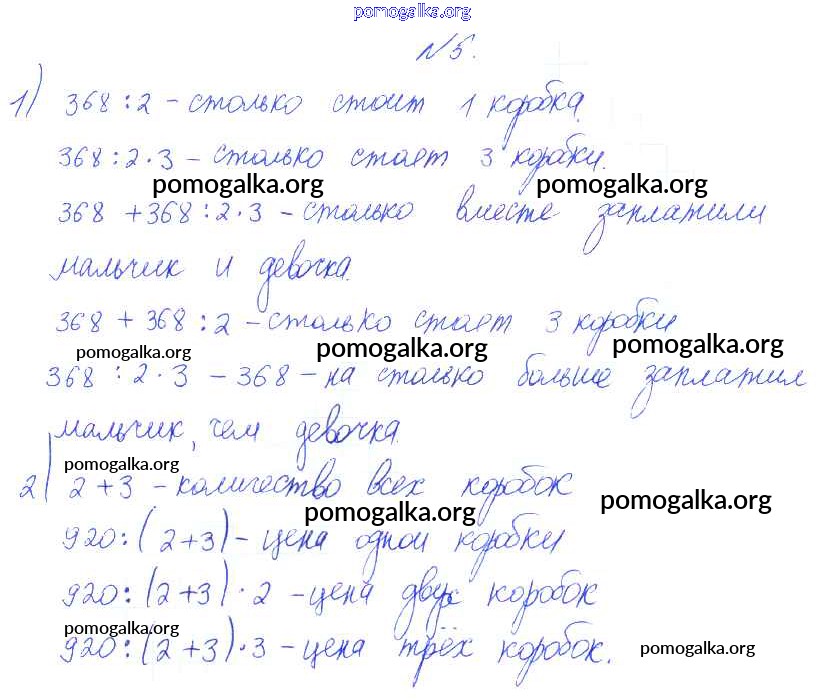 pomogalka.org
№5.
1) 368 : 2 - столько стоит 1 коробка.
368 : 2 · 3 - столько стоет 3 коробки.
pomogalka.org pomogalka.org
368 + 368 : 2 · 3 - столько вместе заплатили
мальчик и девочка.
368 + 368 : 2 - столько стоет 3 коробки
pomogalka.org pomogalka.org pomogalka.org
368 : 2 · 3 - 368 - на столько больше заплатил
мальчик, чем девочка.
pomogalka.org
2) 2 + 3 - количество всех коробок
pomogalka.org pomogalka.org
920 : (2+3) - цена одной коробки
920 : (2+3) · 2 - цена двух коробок
pomogalka.org
920 : (2+3) · 3 - цена трёх коробок.
pomogalka.org